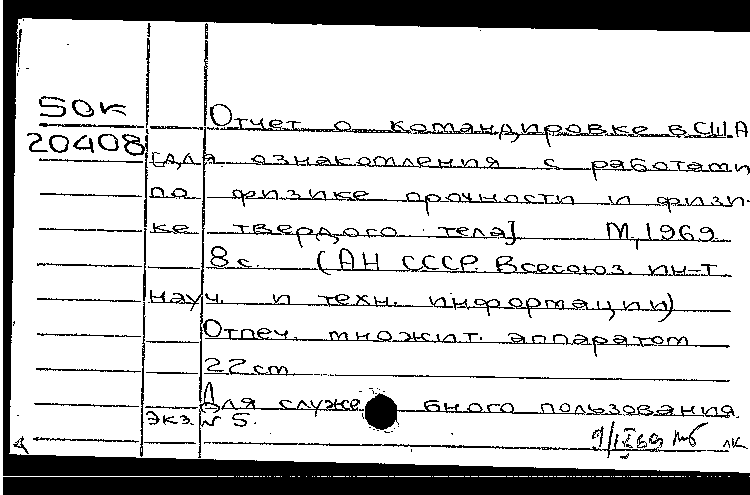 50к
20408
Отчет о командировке в США
[для ознакомления с работами
по физике прочности и физи-
ке твердого тела]. М, 1969
8 с. (АН СССР. Всесоюз. ин-т
науч. и техн. информации)
Отпеч. множит. аппаратом
22 cm
Для служебного пользования
Экз. № 5.
лк